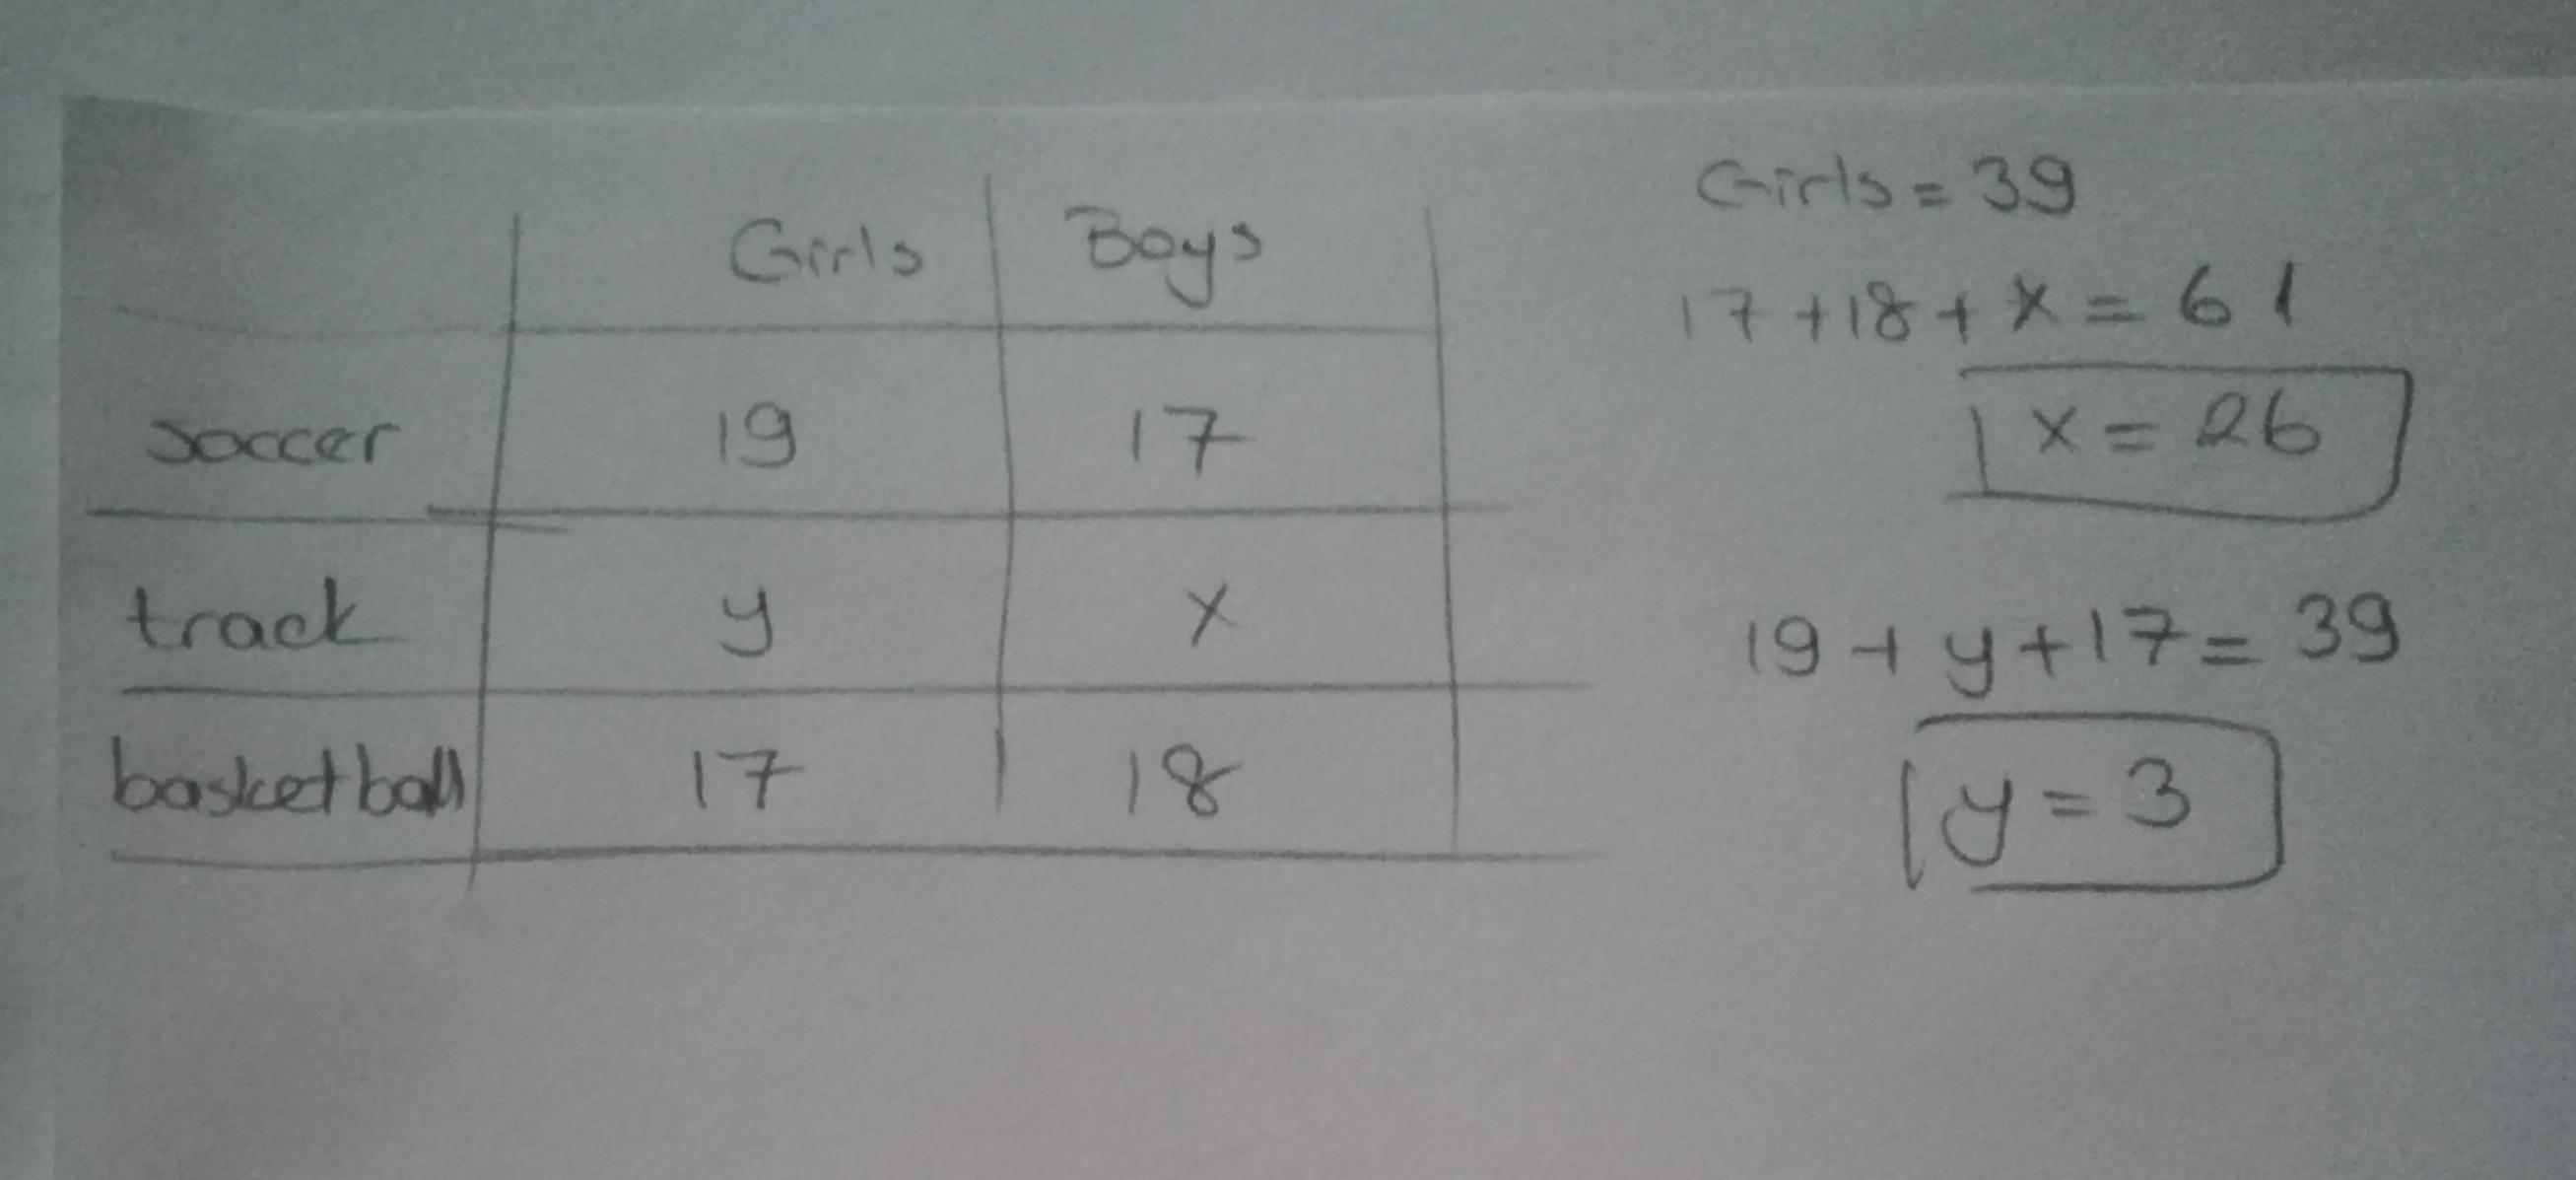 Girls Boys
soccer 19 17
track y x
basketball 17 18
Girls = 39
17 + 18 + x = 61
x = 26
19 + y + 17 = 39
y = 3